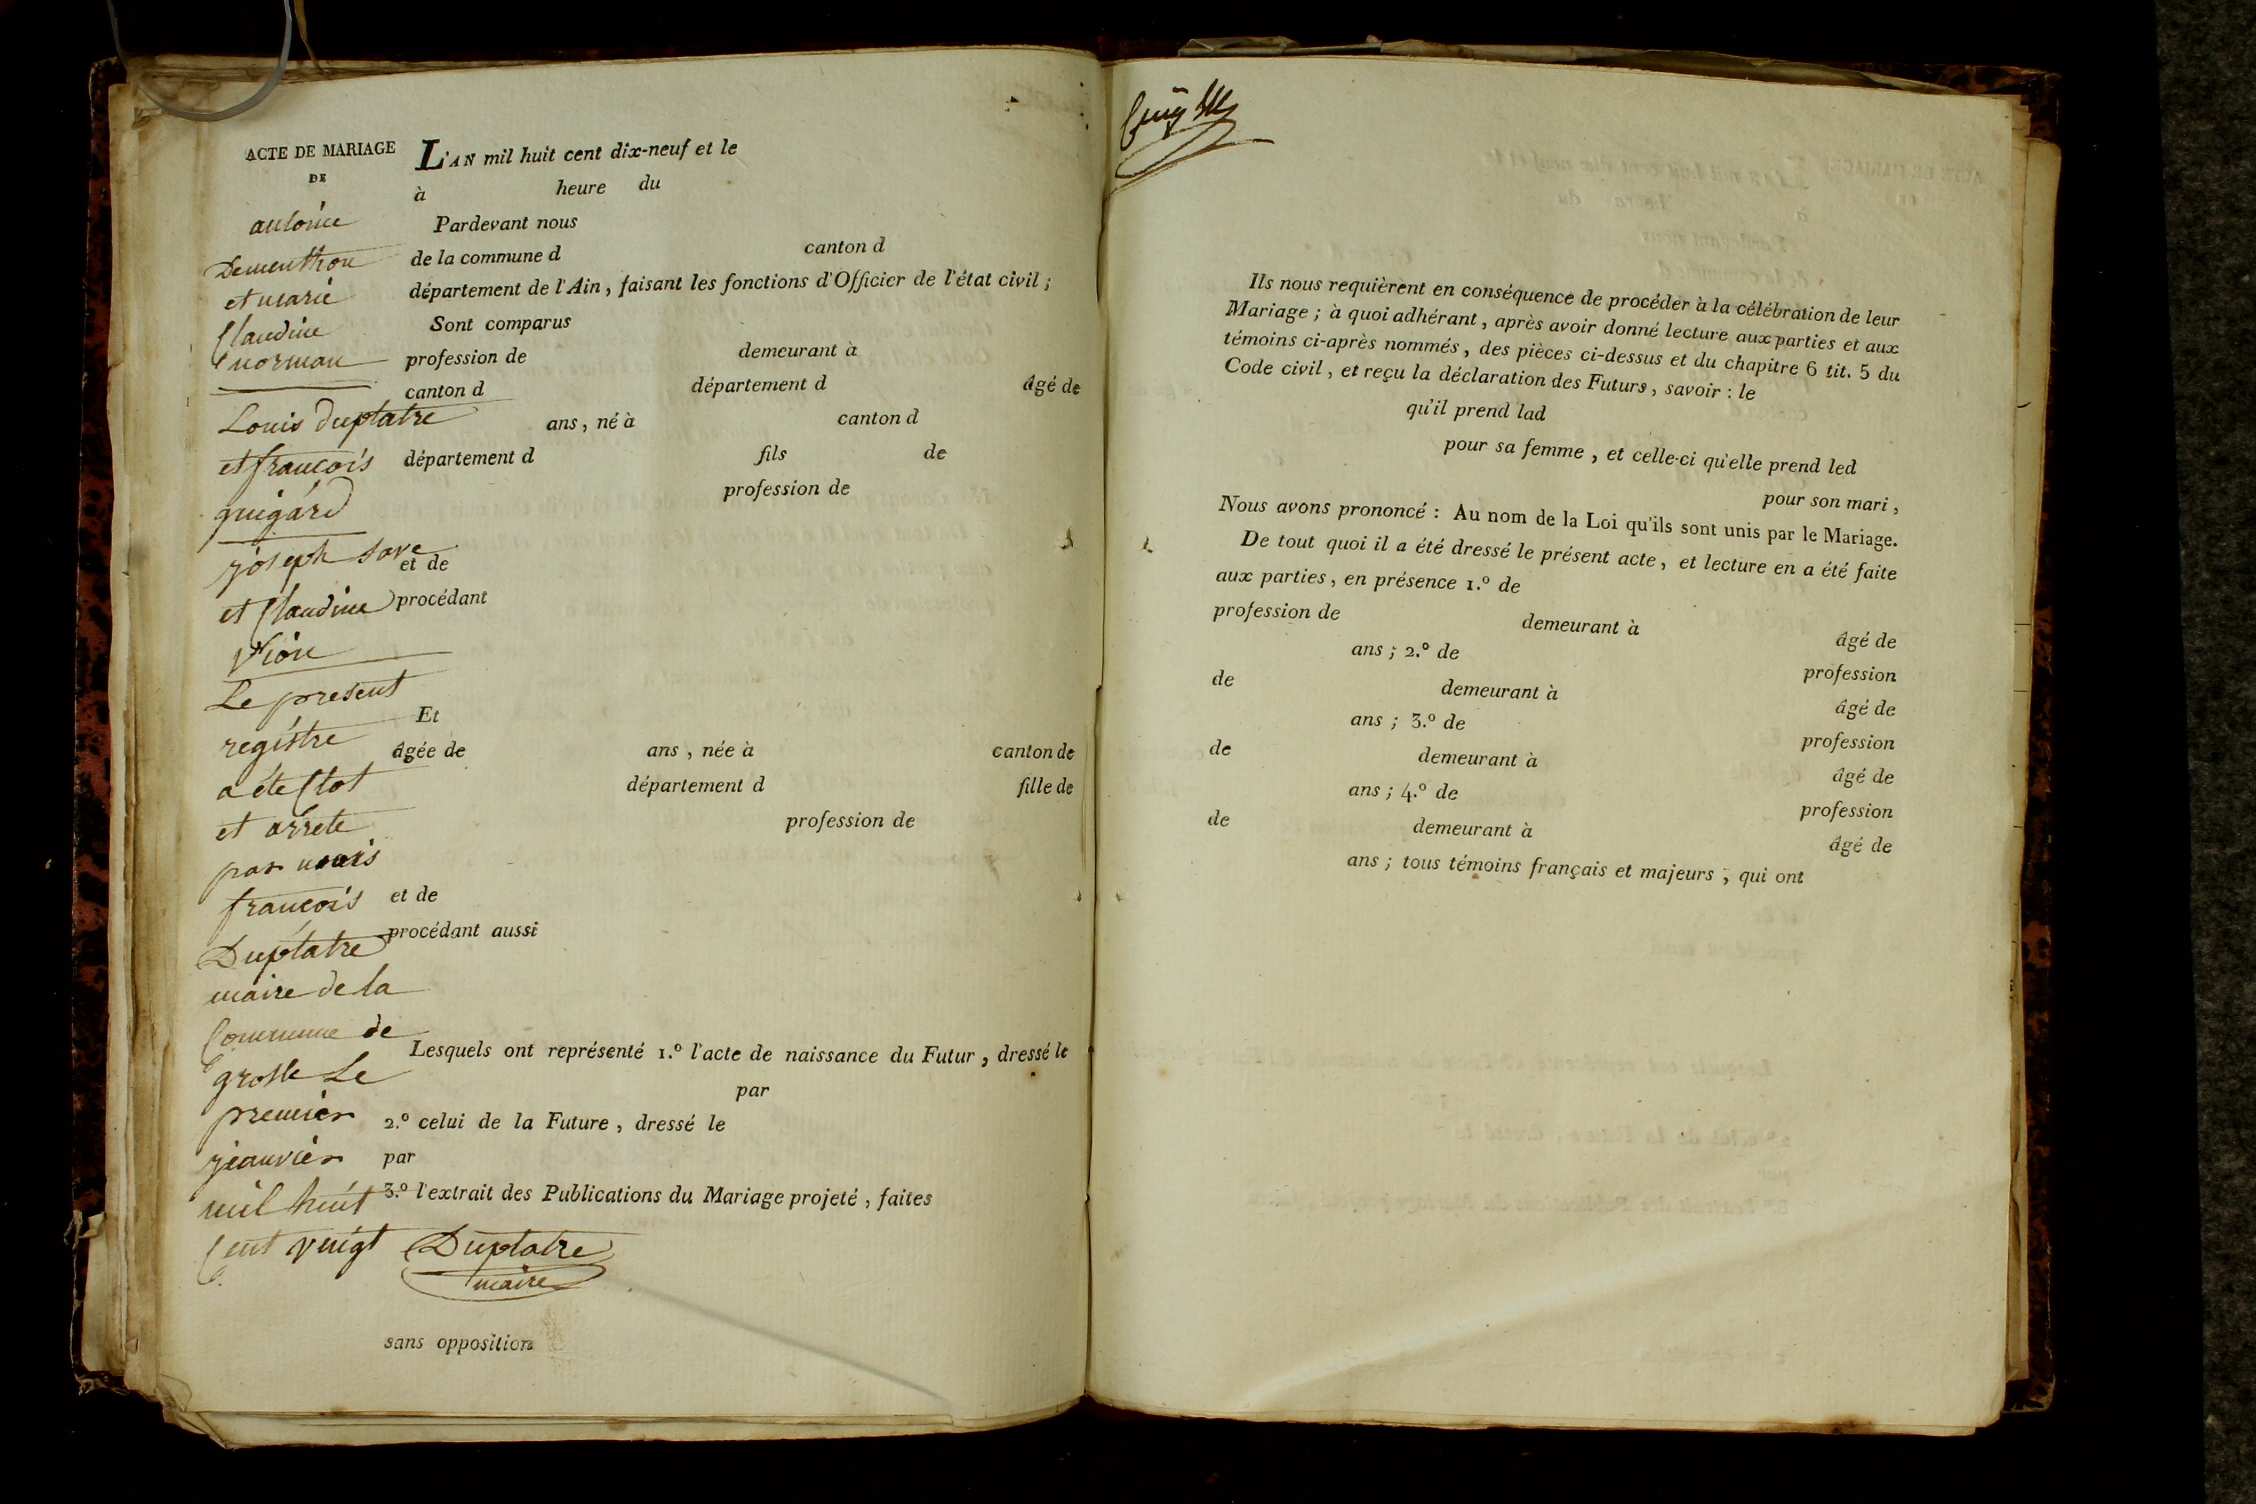 ACTE DE MARIAGE
DE
antoine
Dementhon
et marie
Claudine
normau
Louis duplatre
et francois
guigard
joseph save
et Claudine
Vion
Le present
registre
a été Clot
et arrete
par nous
francois
Duplatre
maire de la
Commune de
groslle Le
premier
jeanvier
mil huit
Cent vingt
Duplatre
maire
L'AN mil huit cent dix-neuf et le
à heure du
Pardevant nous
de la commune d canton d
département de l'Ain, faisant les fonctions d'Officier de l'état civil ;
Sont comparus
profession de demeurant à
canton d département d âgé de
ans, né à canton d
département d fils de
profession de
et de
procédant
Et
âgée de ans, née à canton de
département d fille de
profession de
et de
procédant aussi
Lesquels ont représenté 1.º l'acte de naissance du Futur, dressé le
par
2.º celui de la Future, dressé le
par
3.º l'extrait des Publications du Mariage projeté, faites
sans opposition
Ils nous requièrent en conséquence de procéder à la célébration de leur
Mariage ; à quoi adhérant, après avoir donné lecture aux parties et aux
témoins ci-après nommés, des pièces ci-dessus et du chapitre 6 tit. 5 du
Code civil, et reçu la déclaration des Futurs, savoir : le
qu'il prend lad
pour sa femme, et celle-ci qu'elle prend led
pour son mari,
Nous avons prononcé : Au nom de la Loi qu'ils sont unis par le Mariage.
De tout quoi il a été dressé le présent acte, et lecture en a été faite
aux parties, en présence 1.º de
profession de demeurant à âgé de
ans ; 2.º de profession
de demeurant à âgé de
ans ; 3.º de profession
de demeurant à âgé de
ans ; 4.º de profession
de demeurant à âgé de
ans ; tous témoins français et majeurs, qui ont